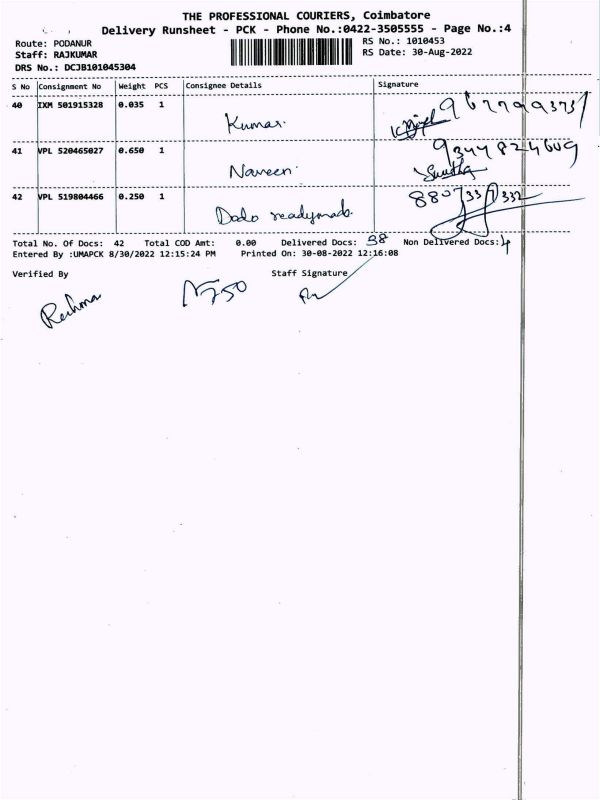 THE PROFESSIONAL COURIERS, Coimbatore
Delivery Runsheet - PCK - Phone No.:0422-3505555 - Page No.:4
Route: PODANUR
Staff: RAJKUMAR
DRS No.: DCJB101045304
RS No.: 1010453
RS Date: 30-Aug-2022
S No Consignment No Weight PCS Consignee Details Signature
40 IXM 501915328 0.035 1 Kumar.
41 VPL 520465027 0.650 1 Naveen 9344824609
42 VPL 519804466 0.250 1 Dado readymade.
Total No. Of Docs: 42 Total COD Amt: 0.00 Delivered Docs: 38 Non Delivered Docs: 4
Entered By :UMAPCK 8/30/2022 12:15:24 PM Printed On: 30-08-2022 12:16:08
Verified By Staff Signature